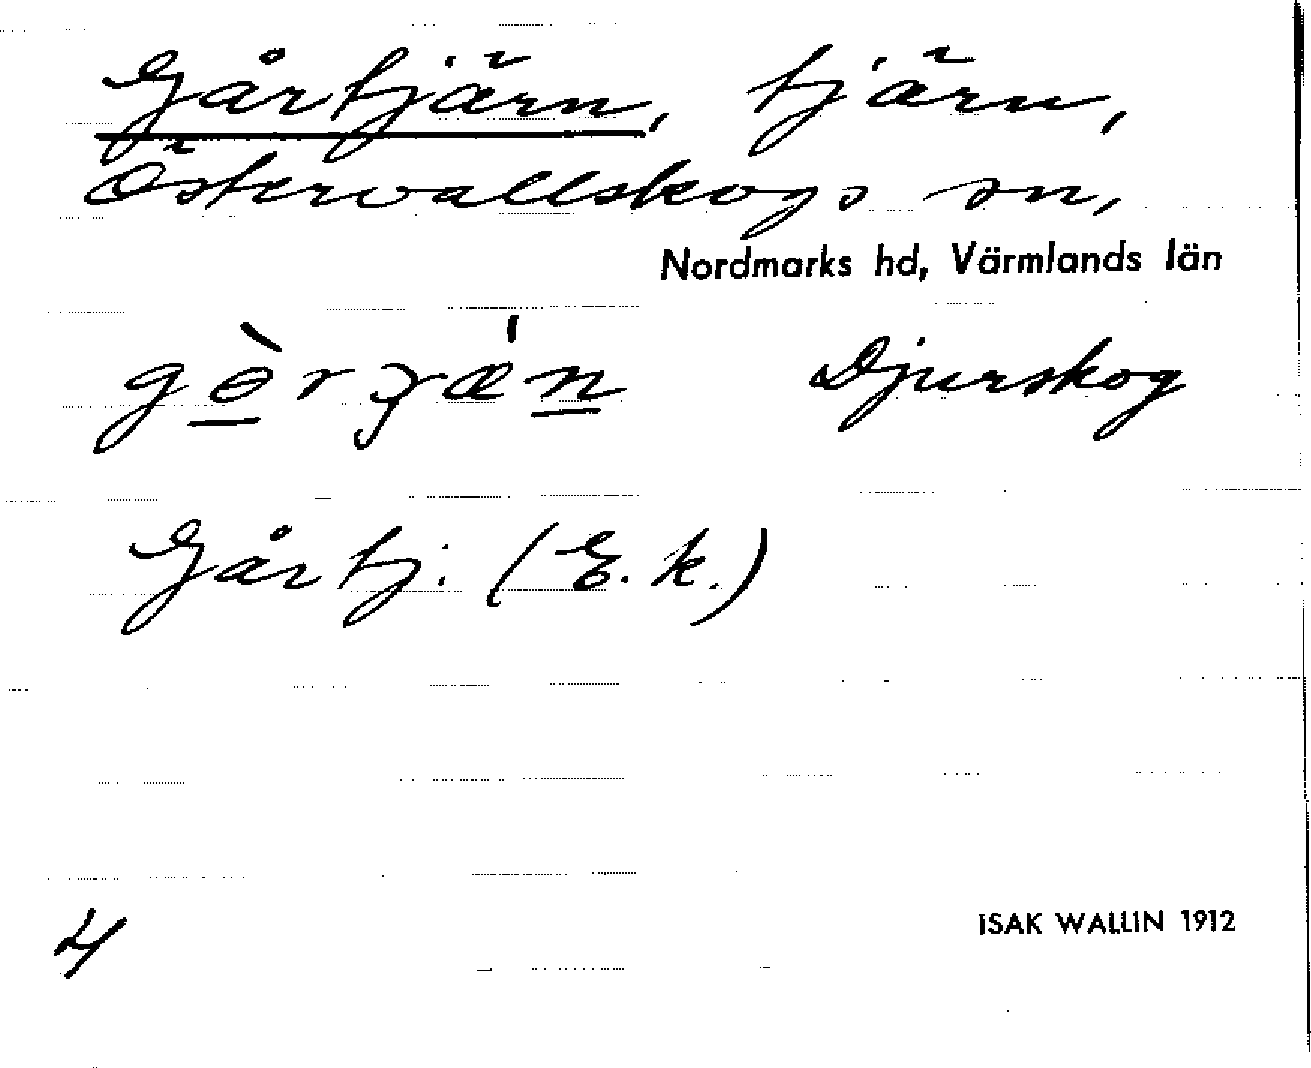 Gårtjärn, tjärn,
Östervallskogs sn,
Nordmarks hd, Värmlands län
Djurskog
Gårtj. (E. k.)
4
ISAK WALLIN 1912